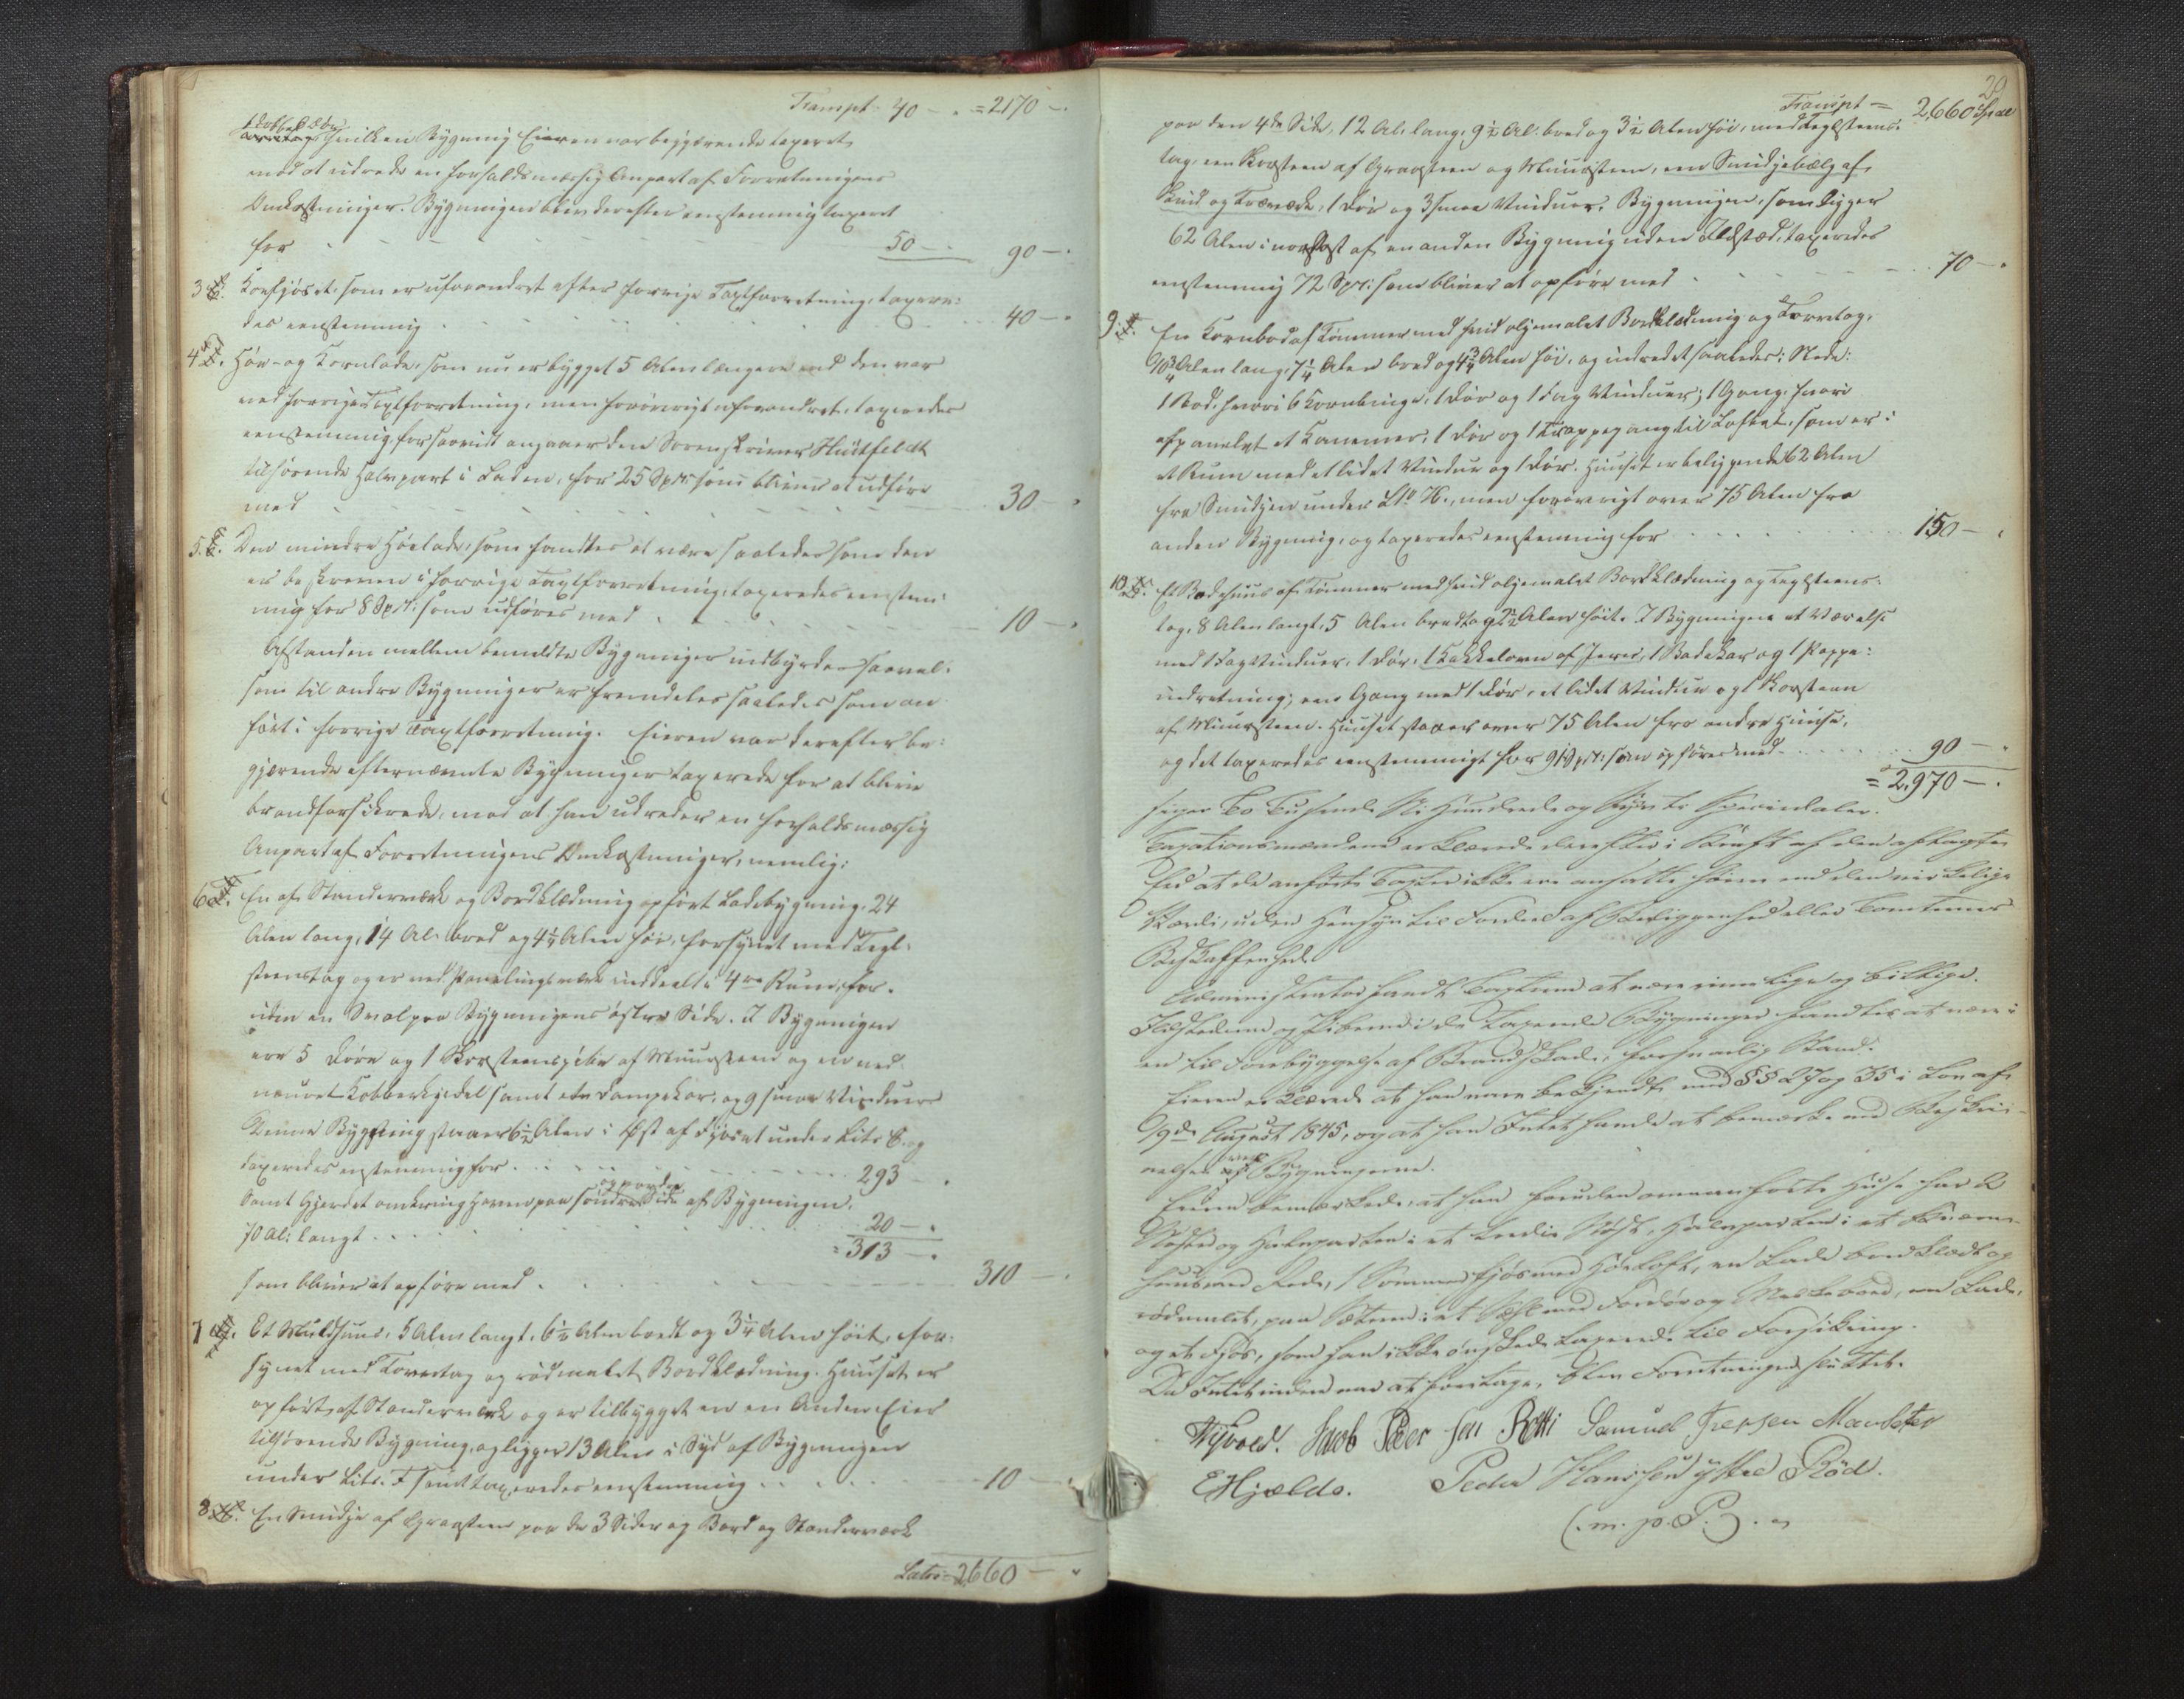 Transpt: 40 — . = 2170 — .
hvilken Bygning Eieren var begjærende taxeret
mod at udrede en forholdsmæssig Anpart af Forretningens
Omkostninger. Bygningen blev derefter eenstemmig taxeret
for 50 — . 90 — .
3 Koefjøset, som er uforandret efter forrige Taxtforretning, taxere-
des eenstemmig 40 — .
4 Høe- og Kornlade, som nu er bygget 5 Alen længere end den var
ved forrige Taxtforretning, men forøvrigt uforandret, taxeredes
eenstemmig, forsaavidt angaaer den Sorenskriver Huitfeldt
tilhørende Halvpart i Laden, for 25 Spd. som bliver at udføre
med 30 — .
5. Den mindre Høelade, som fandtes at være saaledes som den
er beskreven i forrige Taxtforretning, taxeredes eenstem-
mig for 8 Spd. som udføres med 10 — .
Afstanden mellem bemeldte Bygninger indbyrdes saavel-
som til andre Bygninger er fremdeles saaledes som an-
ført i forrige Taxtforretning. Eieren var derefter be-
gjærende efternævnte Bygninger taxerede for at blive
brandforsikrede, mod at han udreder en forholdsmæssig
Anpart af Forretningens Omkostninger, nemlig:
6 En af Standerværk og Bordklædning opført Ladebygning, 24
Alen lang, 14 Al. bred og 4 1/4 Alen høi, forsynet med Tegl-
steenstag og er med Panelingsværk inddeelt i 4re Rum, for-
uden en Sval paa Bygningens østre Side. I Bygningen
ere 5 Døre og 1 Skorsteenspibe af Muursteen og en ned-
muuret Kobberkjedel samt et Dampekar, og 9 smaa Vinduer
Denne Bygning staaer 6 1/2 Alen i Øst af Fjøset under Litr C. og
taxeredes eenstemmig for 293 — .
Samt Gjerdet omkring Haven paa søndre og nordre Side af Bygningen,
70 Al: langt 20 — .
= 313 — .
som bliver at opføre med 310 — .
7 Et Muldhuus, 5 Alen langt, 6 1/2 Alen bredt og 3 1/4 Alen høit, for-
synet med Torvtag og rødmalet Bordklædning. Huuset er
opført af Standerværk og er tilbygget en en Anden Eier
tilhørende Bygning, og ligger 13 Alen i Syd af Bygningen
under Litr. F samt taxeredes eenstemmig 10
8. En Smidje af Graasteen paa de 3 Sider og Bord og Standerværk
Latus 2660 — "
29
Transpt = 2,660 Spd
paa den 4de Side, 12 Al. lang, 9 1/2 Al. bred og 3 1/2 Alen høi, med Teglsteens-
tag, een Skorsteen af Graasteen og Muursteen, een Smidjebælg af
Skind og Træværk, 1 Dør og 3 smaa Vinduer. Bygningen, som ligger
62 Alen i nordost af en anden Bygning uden Ildsted, taxeredes
eenstemmig 72 Spd: som bliver at opføre med 70 — .
9. En Kornbod af Tømmer med hvid oljemalet Bordklædning og Torvtag,
10 3/4 Alen lang, 7 1/4 Alen bred og 4 3/4 Alen høi, og indredet saaledes: Nede:
1 Bod, hvori 6 Kornbinger, 1 Dør og 1 Fag Vinduer; 1 Gang, hvori
afpanelet et Kammer, 1 Dør og 1 Trappegang til Loftet, som er i
et Rum med et lidet Vindue og 1 Dør. Huuset er beliggende 62 Alen
fra Smidjen under Lto H., men forøvrigt over 75 Alen fra
anden Bygning, og taxeredes eenstemmig for 150 — .
10. Et Badehuus af Tømmer med hvid oljemalet Bordklædning og Teglsteens-
tag, 8 Alen langt, 5 Alen bredt og 2 1/2 Alen høit. I Bygningen et Værelse
med 1 Fag Vinduer, 1 Dør, 1 Kakkelovn af Jern, 1 Badekar og 1 Pompe-
indretning; een Gang med 1 Dør, et lidet Vindue og 1 Skorsteen
af Muursteen. Huuset staaer over 75 Alen fra andre Huuse,
og det taxeredes eenstemmigt for 91 Spd: som opføres med 90 — .
= 2,970 — .
siger To Tusende Ni Hundrede og Syvti Speciedaler.
Taxationsmændene erklærede derefter i Kraft af den aflagte
Eed at de anførte Taxter ikke ere ansatte høiere end den virkelige
Værdi, uden Hensyn til Fordeel af Beliggenhed eller Tomternes
Beskaffenhed.
Administrator fandt Taxterne at være rimelige og billige.
Ildstederne og Piberne i de taxerede Bygninger fandtes at være i
en til Forebyggelse af Brandskade, forsvarlig Stand.
Eieren erklærede at han var bekjendt med §§ 27 og 35 i Lov af
19de August 1845, og at han Intet havde at bemærke ved Beskri-
velsen over Bygningerne.
Eieren bemærkede, at han foruden ovenanførte Huse har 2
Nøster og Halvparten i et tredie Nøst, Halvparten i et Qværn-
huus med Rede, 1 Sommerfjøs med Høeloft, en Lade bordklædt og
rødmalet, paa Sæteren: et Sæl med Fordør og Melkebod, en Lade,
og et Fjøs, som han ikke ønskede taxerede til Forsikring.
Da Intet videre var at foretage, blev Forretningen sluttet.
Nyvold. Jacob Peder Jen Retti Samuel Iversen Mauseter
E Hjelde. Peder Hanssen ytre Röd.
(m. p. P.)